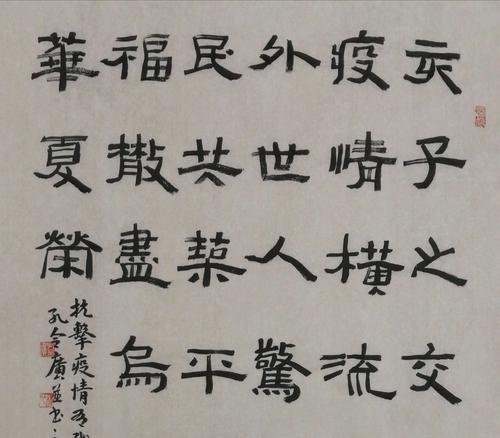 亥子之交
疫情橫流
外世人驚
民共築平
福撒盡烏
華夏榮
抗擊疫情
孔令廣並书